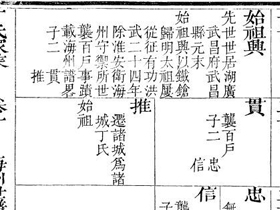 始祖興
先世世居湖廣
武昌府武昌
縣元末
始祖興以鐵鎗
歸明太祖屢
從征有功洪
武二十四年
除淮安衛海
州守禦所世
襲百戶事蹟
載海州諸畧
子二 貫
推
貫
襲百戶
子二 忠
信
推
遷諸城爲諸
城丁氏
始祖
忠
信